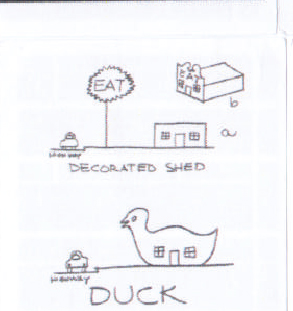 EAT
EAT
b
a
HIGHWAY
DECORATED SHED
HIGHWAY
DUCK